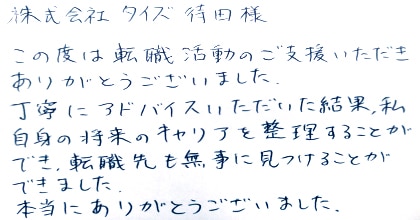 株式会社 タイズ 待田様
この度は転職活動のご支援いただき
ありがとうございました.
丁寧にアドバイスいただいた結果,私
自身の将来のキャリアを整理することが
でき,転職先も無事に見つけることが
できました.
本当にありがとうございました.